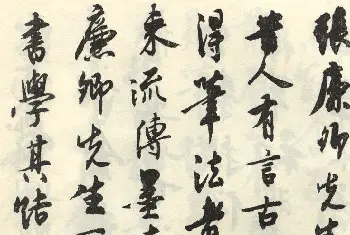 張廉卿先生
昔人有言古
得筆法者
來流傳墨
廉卿先生
書學其